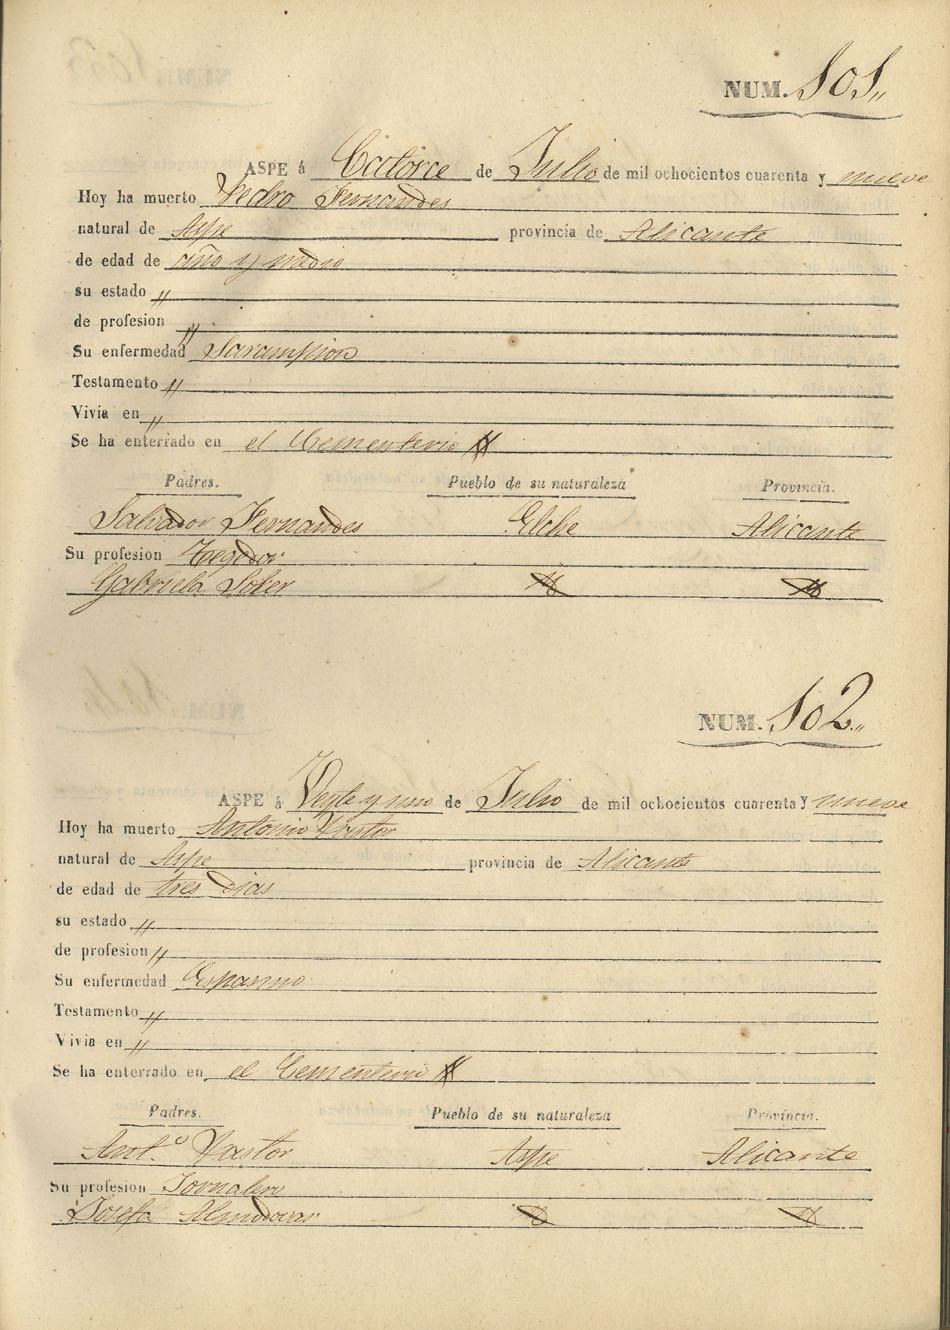 NUM. 101„
ASPE á Catorce de Julio de mil ochocientos cuarenta y nueve
Hoy ha muerto Pedro Fernandes
natural de Aspe provincia de Alicante
de edad de año y medio
su estado „
de profesion „
Su enfermedad Sarampion
Testamento „
Vivia en „
Se ha enterrado en el Cementerio
Padres. Pueblo de su naturaleza Provincia.
Salvador Fernandes Elche Alicante
Su profesion Tegedor
Gabriela Soler Yd Yd
NUM. 102„
ASPE á Veyte y uno de Julio de mil ochocientos cuarenta y nueve
Hoy ha muerto Antonio Pastor
natural de Aspe provincia de Alicante
de edad de tres dias
su estado „
de profesion „
Su enfermedad Espasmo
Testamento „
Vivia en „
Se ha enterrado en el Cementerio
Padres. Pueblo de su naturaleza Provincia.
Ant.º Pastor Aspe Alicante
Su profesion Jornalero
Josefa Almodovar Yd Yd